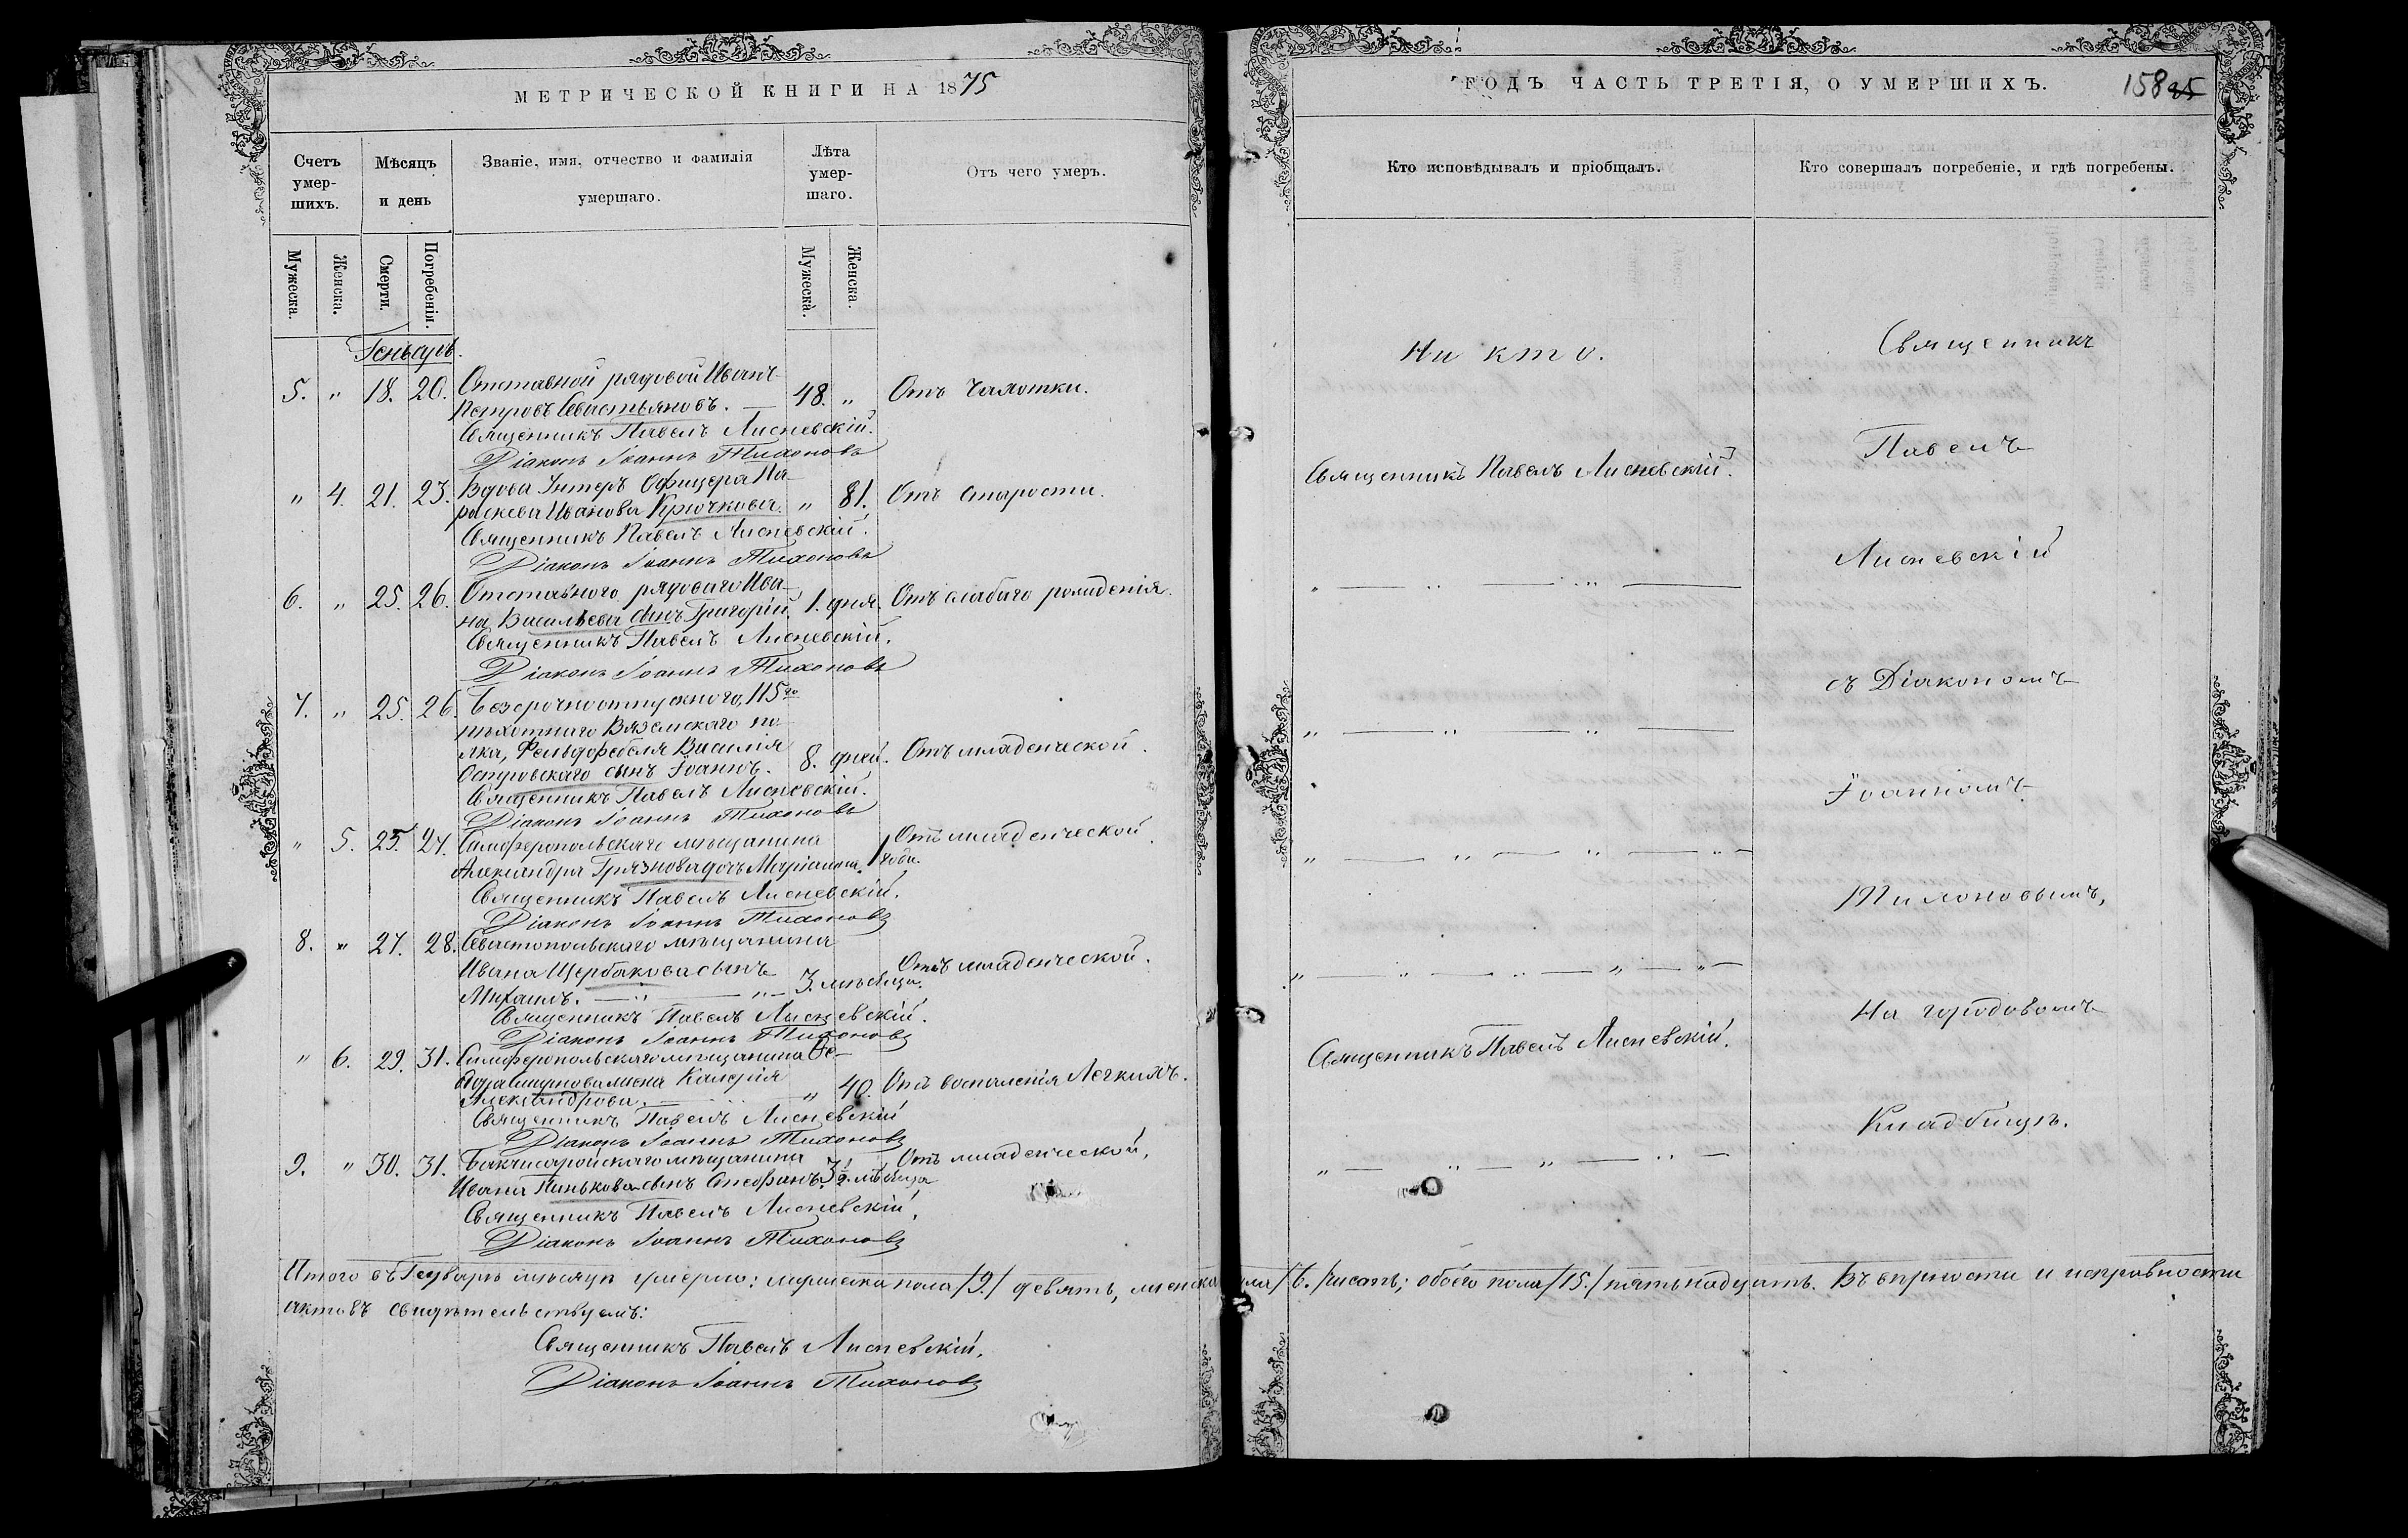 МЕТРИЧЕСКОЙ КНИГИ НА 1875
Счетъ умер-шихъ.
Мѣсяцъ и день
Званіе, имя, отчество и фамилія умершаго.
Лѣта умер-шаго.
Отъ чего умеръ.
Мужеска.
Женска.
Смерти.
Погребенія.
Мужеска.
Женска.
Генварь.
5. " 18. 20. Отставной рядовой Иванъ
Петровъ Севастьяновъ. — 48. " Отъ Чахотки.
Священникъ Павелъ Лисневскій.
Діаконъ Іоаннъ Тихоновъ
" 4. 21. 23. Вдова Унтеръ Офицера Па-
раскева Иванова Крючкова. " 81. Отъ старости.
Священникъ Павелъ Лисневскій.
Діаконъ Іоаннъ Тихоновъ
6. " 25. 26. Отставного рядоваго Ива-
на Васильева сынъ Григорій. 1. дня. Отъ слабаго рожденія.
Священникъ Павелъ Лисневскій.
Діаконъ Іоаннъ Тихоновъ
7. " 25. 26. Безсрочноотпускного, 115го
пѣхотнаго Вяземскаго по-
лка, Фельдфебеля Василія
Островскаго сынъ Іоаннъ. 8. дней. Отъ младенческой.
Священникъ Павелъ Лисневскій.
Діаконъ Іоаннъ Тихоновъ
" 5. 25. 27. Симферопольскаго мѣщанина
Александра Грязнова дочь Маріанна. 1 года. Отъ младенческой.
Священникъ Павелъ Лисневскій.
Діаконъ Іоаннъ Тихоновъ
8. " 27. 28. Севастопольскаго мѣщанина
Ивана Щербакова сынъ
Михаилъ. — " — " — 3. мѣсяца. Отъ младенческой.
Священникъ Павелъ Лисневскій.
Діаконъ Іоаннъ Тихоновъ
" 6. 29. 31. Симферопольскаго мѣщанина Ѳе-
дора жена Калерія
Александрова. " 40. Отъ воспаленія Легкихъ.
Священникъ Павелъ Лисневскій
Діаконъ Іоаннъ Тихоновъ
9. " 30. 31. Бахчисарайскаго мѣщанина
Ивана Пинькова сынъ Стефанъ. 3 1/2 мѣсяца Отъ младенческой.
Священникъ Павелъ Лисневскій.
Діаконъ Іоаннъ Тихоновъ
ГОДЪ ЧАСТЬ ТРЕТІЯ, О УМЕРШИХЪ.
158 25
Кто исповѣдывалъ и пріобщалъ.
Кто совершалъ погребеніе, и гдѣ погребены.
Ни кто.
Священникъ Павелъ Лисневскій.
" — " — " —
" — " — " —
" — " — " — " —
" — " — " — " — " —
Священникъ Павелъ Лисневскій.
" — " — " — " —
Священникъ
Павелъ
Лисневскій
съ Діакономъ
Іоанномъ
Тихоновымъ,
На городовомъ
Кладбищѣ.
Итого въ Генварѣ мѣсяцѣ умерло: мужеска пола /9./ девять, женска пола /6./ шесть; обоего пола /15./ пятьнадцать. Въ вѣрности и исправности
актовъ свидѣтельствуемъ:
Священникъ Павелъ Лисневскій.
Діаконъ Іоаннъ Тихоновъ